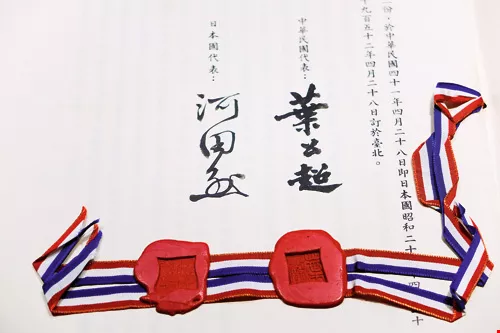 份，於中華民國四十一年四月二十八日即日本國昭和二十 四 十
九百五十二年四月二十八日訂於臺北。
中華民國代表：
葉公超
日本國代表：
河田烈